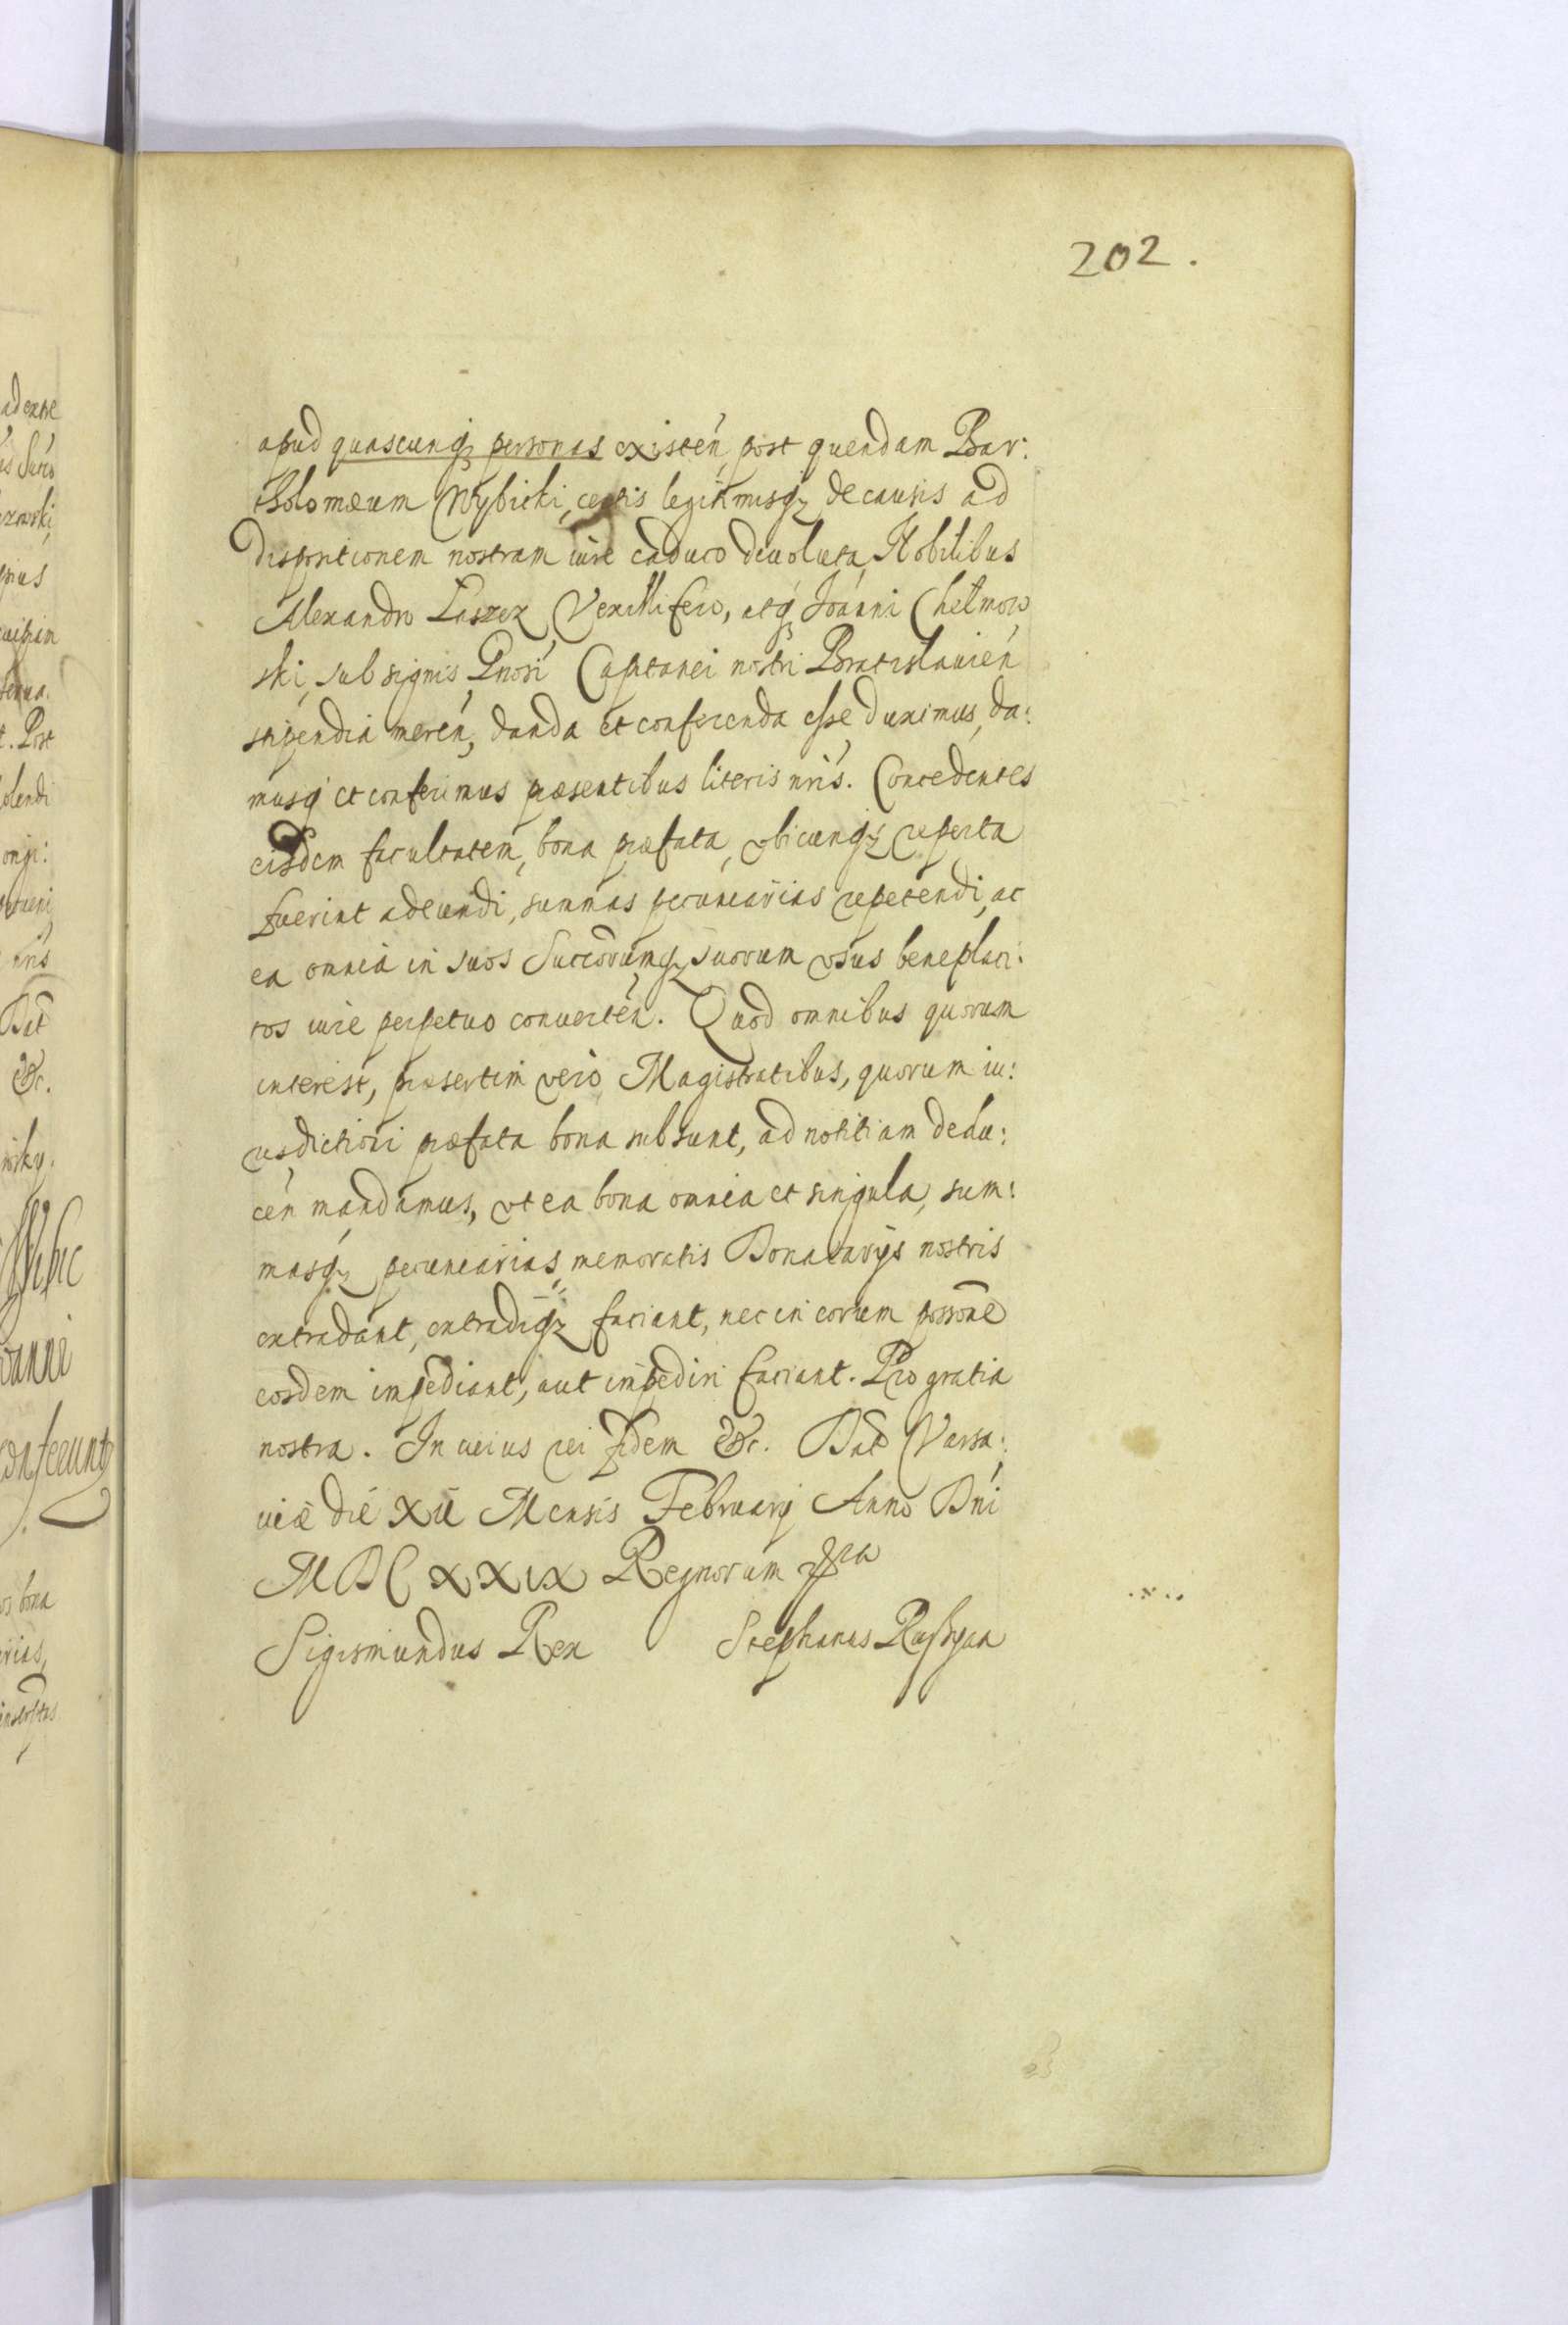 202.
apud quascunq₃ personas existeń, post quendam Bar:
tholomæum Wybicki, certis legitimisq₃ de causis ad
dispositionem nostram iure caduco deuoluta, Nobilibus
Alexandro Łaszcz Vexillifero, atq₃ Joanni Chełmow
ski, sub signis Gnosi Capitanei nostri Bratislauień
stipendia mereń, danda et conferenda esse duximus, da:
musq́ et conferimus præsentibus literis nris. Concedentes
eisdem facultatem, bona præfata, vbicunq₃ reperta
fuerint adeundi, summas pecuniarias repetendi, ac
ea omnia in suos Succorumq₃ suorum vsus beneplaci:
tos iure perpetuo conuerteń. Quod omnibus quorum
interest, præsertim vero Magistratibus, quorum iu:
risdictioni præfata bona subsunt, ad notitiam dedu:
ceń mandamus, vt ea bona omnia et singula, sum:
masq₃ pecuniarias, memoratis Donatarijs nostris
extradant, extradiq₃ faciant, nec in eorum possone
eosdem impediant, aut impediri faciant. Pro gratia
nostra. In cuius rei fidem &c. Dat Varsa:
uiæ die XII Mensis Februarij Anno Dni
MDCXXIX Regnorum
Sigismundus Rex Stephanus
ad extre
pius
t. Post
nris
Dat
&c.
oanni
os bona